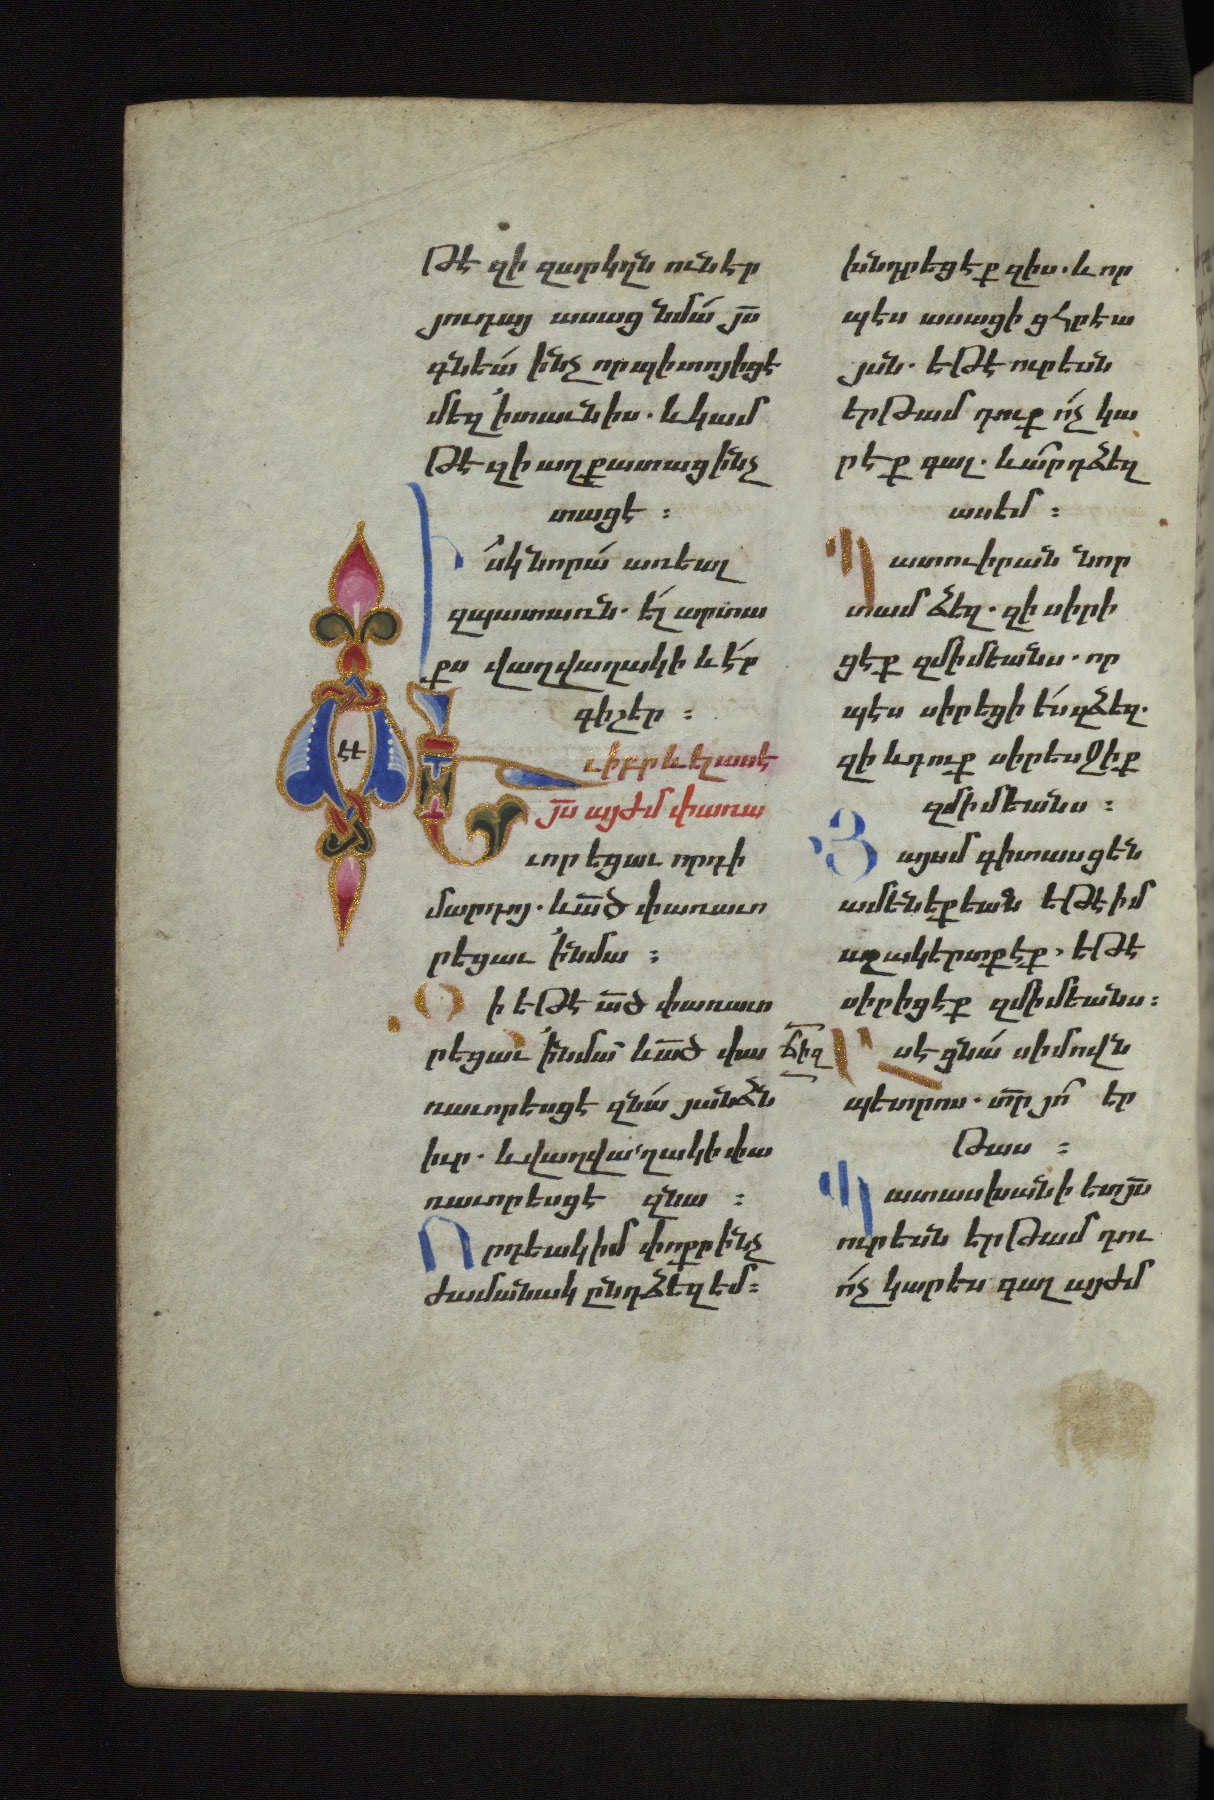 թէ զի զարկղն ունէր
յուդայ ասաց նմա՛ յս̅
գնեա՛ ինչ որ պիտոյ իցէ
մեզ ՚ի տաւնիս. և կամ
թէ զի աղքատաց ինչ
տացէ ։
Իսկ նորա՛ առեալ
զպատառն. ել արտա
քս վաղվաղակի և է՛ր
գիշեր ։
Եւ իբր և ել ասէ
յս̅ այժմ փառա
ւորեցաւ որդի
մարդոյ. և ա̅ծ փառաւո
րեցաւ ՚ի նմա ։
Զի եթէ ա̅ծ փառաւո
րեցաւ ՚ի նմա՛ և ա̅ծ փա
ռաւորեսցէ զնա՛ յանձն
իւր. և վաղվաղակի փա
ռաւորեսցէ զնա ։
Որդեակ իմ փոքր ինչ
ժամանակ ընդ ձեզ եմ ։
ԷԷ
խնդրեցէք զիս. և որ
պէս ասացի ցհրեա
յսն. եթէ ուր ես ն
երթամ դուք ո՛չ կա
րէք գալ. և արդ ձեզ
ասեմ ։
Պատուիրան նոր
տամ ձեզ. զի սիրի
ցէք զմիմեանս. որ
պէս սիրեցի ես զձեզ.
զի և դուք սիրեսջիք
զմիմեանս ։
Յայսմ գիտասցեն
ամենեքեան եթէ իմ
աշակերտք էք, եթէ
սիրիցէք զմիմեանս ։
ճիզ
Ասէ ցնա՛ սիմովն
պետրոս. տ̅ր յո՞ եր
թաս ։
Պատասխանի ետ յս̅
ուր եսն երթամ դու
ո՛չ կարես գալ այժմ